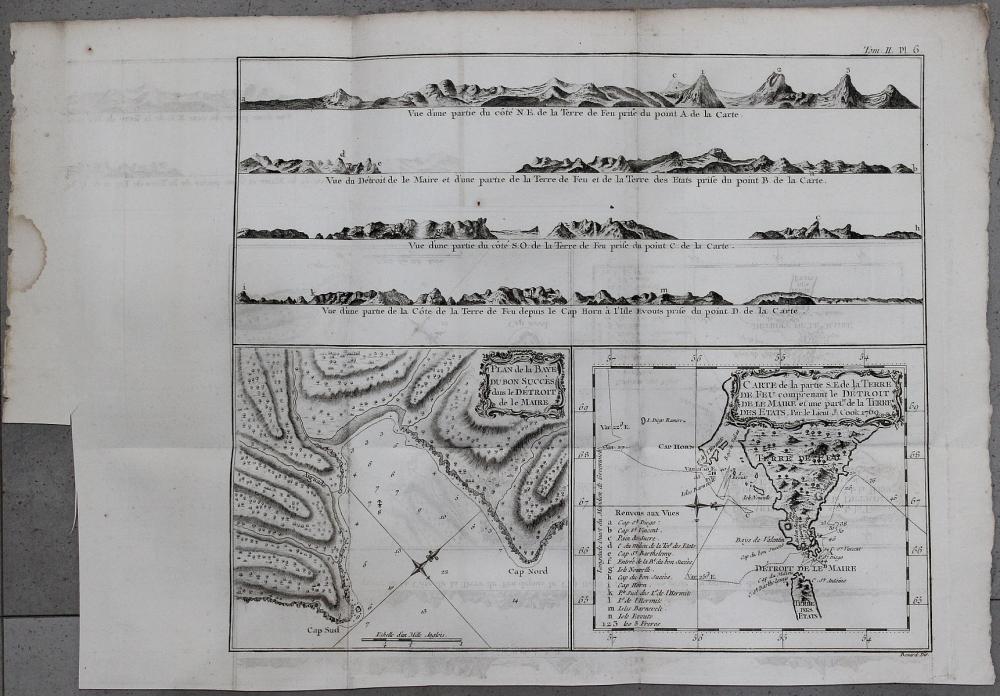 Tom. II. Pl. 6
c 1 2 3
a
Vue d'une partie du côté N.E. de la Terre de Feu prise du point A. de la Carte.
d e
b
Vue du Détroit de le Maire et d'une partie de la Terre de Feu et de la Terre des Etats prise du point B. de la Carte.
c
h
Vue d'une partie du côté S.O. de la Terre de Feu prise du point C. de la Carte.
i k m
Vue d'une partie de la Côte de la Terre de Feu depuis le Cap Horn à l'Isle Evouts prise du point D. de la Carte.
PLAN de la BAYE
DU BON SUCCÈS
dans le DÉTROIT
de le MAIRE
Cap Nord
Cap Sud
Echelle d'un Mille Anglois.
57 56 55 54
CARTE de la partie S.E. de la TERRE
DE FEU comprenant le DÉTROIT
DE LE MAIRE et une part.e de la TERRE
DES ETATS, Par le Lieut. J. Cook 1769
I. Diego Ramires
Var. 22d. E.
CAP HORN
TERRE DE FEU
Isle Nouvelle
Longitude Ouest du Méridien de Greenwich
Renvois aux Vues
a Cap St. Diego
b Cap St. Vincent
c Pain de Sucre
d C. du milieu de la Ter. des Etats
e Cap St. Barthelemy
f Entrée de la B. du bon Succès
g Isle Nouvelle
h Cap du bon Succès
i Cap Horn
k P.te Sud des I. de l'Hermite
l I. de l'Hermite
m Isles Barnevelt
n Isle Evouts
1 2 3 les 3 Freres
Baye de Valentin
Cap du bon Succès
C. St. Vincent
C. St. Diego
DÉTROIT DE LE MAIRE
Var. 25d. E.
Cap du Milieu
Cap St. Barthelemy
C. St. Antoine
TERRE
DES
ETATS
57 56 55 54
Benard Dir.